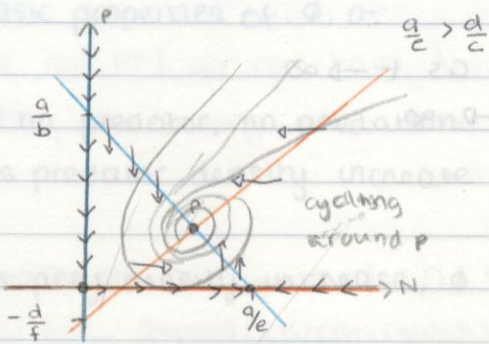 P
a/c > d/c
a/b
P
cycling
around p
N
-d/f
a/e